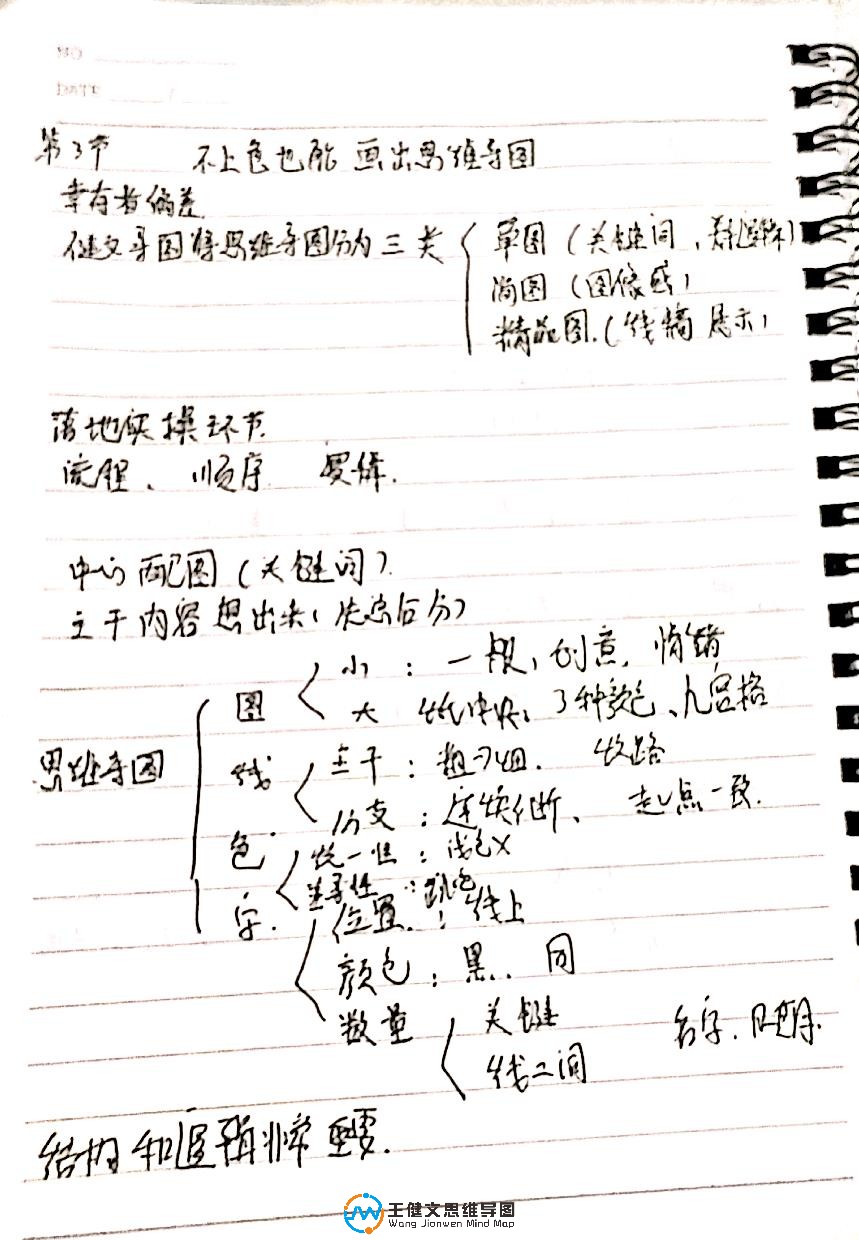 第3节 不上色也能画出思维导图
幸存者偏差
健文导图将思维导图分为三类
草图（关键词，
简图（图像感）
精品图.（线稿 展示）
落地实操环节.
流程、顺序
中心配图（关键词）.
主干内容想出来（先总后分）
思维导图
图
小：一般，创意，情绪
大 纸中央，3种颜色、九宫格
线
主干：粗→细.
分支：连续不断、起点一致.
色
统一性：浅色×
字.
位置：线上
颜色：黑.. 同
数量
关键
线＝词
名字、日期.
结构和逻辑非常重要.
王健文思维导图
Wang Jianwen Mind Map